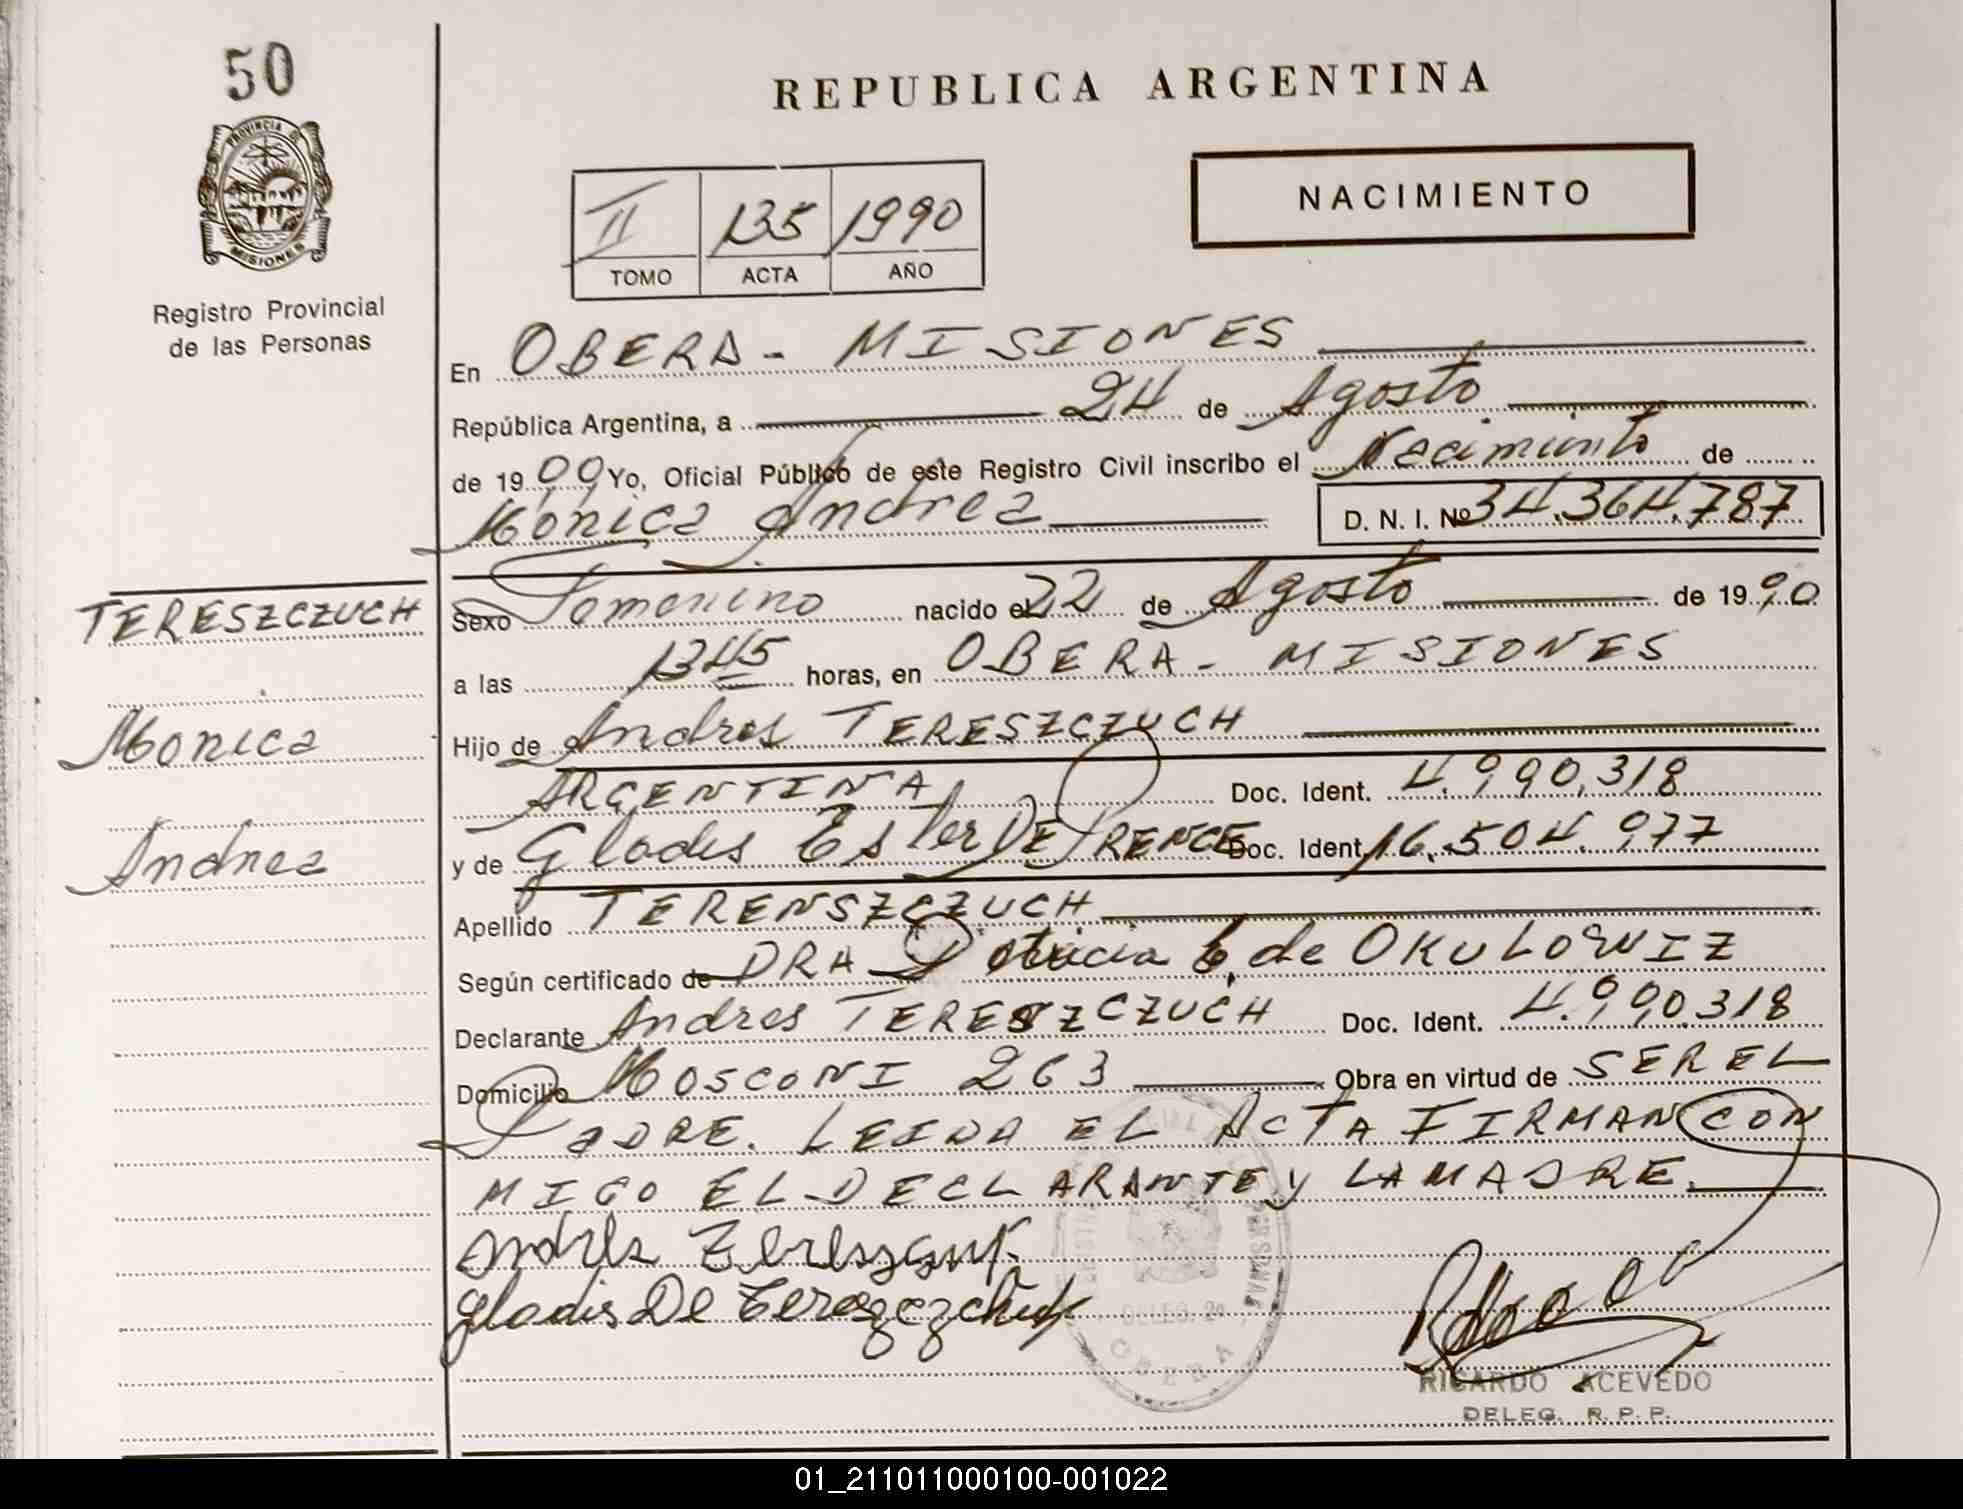 50
PROVINCIA DE
MISIONES
Registro Provincial
de las Personas
REPUBLICA ARGENTINA
NACIMIENTO
II 135 1990
TOMO ACTA AÑO
En OBERA - MISIONES
República Argentina, a 24 de Agosto
de 1990 Yo, Oficial Público de este Registro Civil inscribo el Nacimiento de
Mónica Andrea D. N. I. Nº 34.364.787
TERESZCZUCH
Sexo Femenino nacido el 22 de Agosto de 1990
a las 1345 horas, en OBERA - MISIONES
Monica
Hijo de Andres TERESZCZUCH
ARGENTINA Doc. Ident. 4.990.318
Andrea
y de Gladis Ester DE PRENCE Doc. Ident. 16.504.977
Apellido TERENSZCZUCH
Según certificado de DRA Patricia E. de OKULOWIZ
Declarante Andres TERESZCZUCH Doc. Ident. 4.990.318
Domicilio MOSCONI 263 Obra en virtud de SER EL
PADRE. LEIDA EL ACTA FIRMAN CON
MIGO EL DECLARANTE Y LA MADRE.
Andrés
Gladis De
DELEG. 2a
OBERA
RICARDO ACEVEDO
DELEG. R. P. P.
01_211011000100-001022